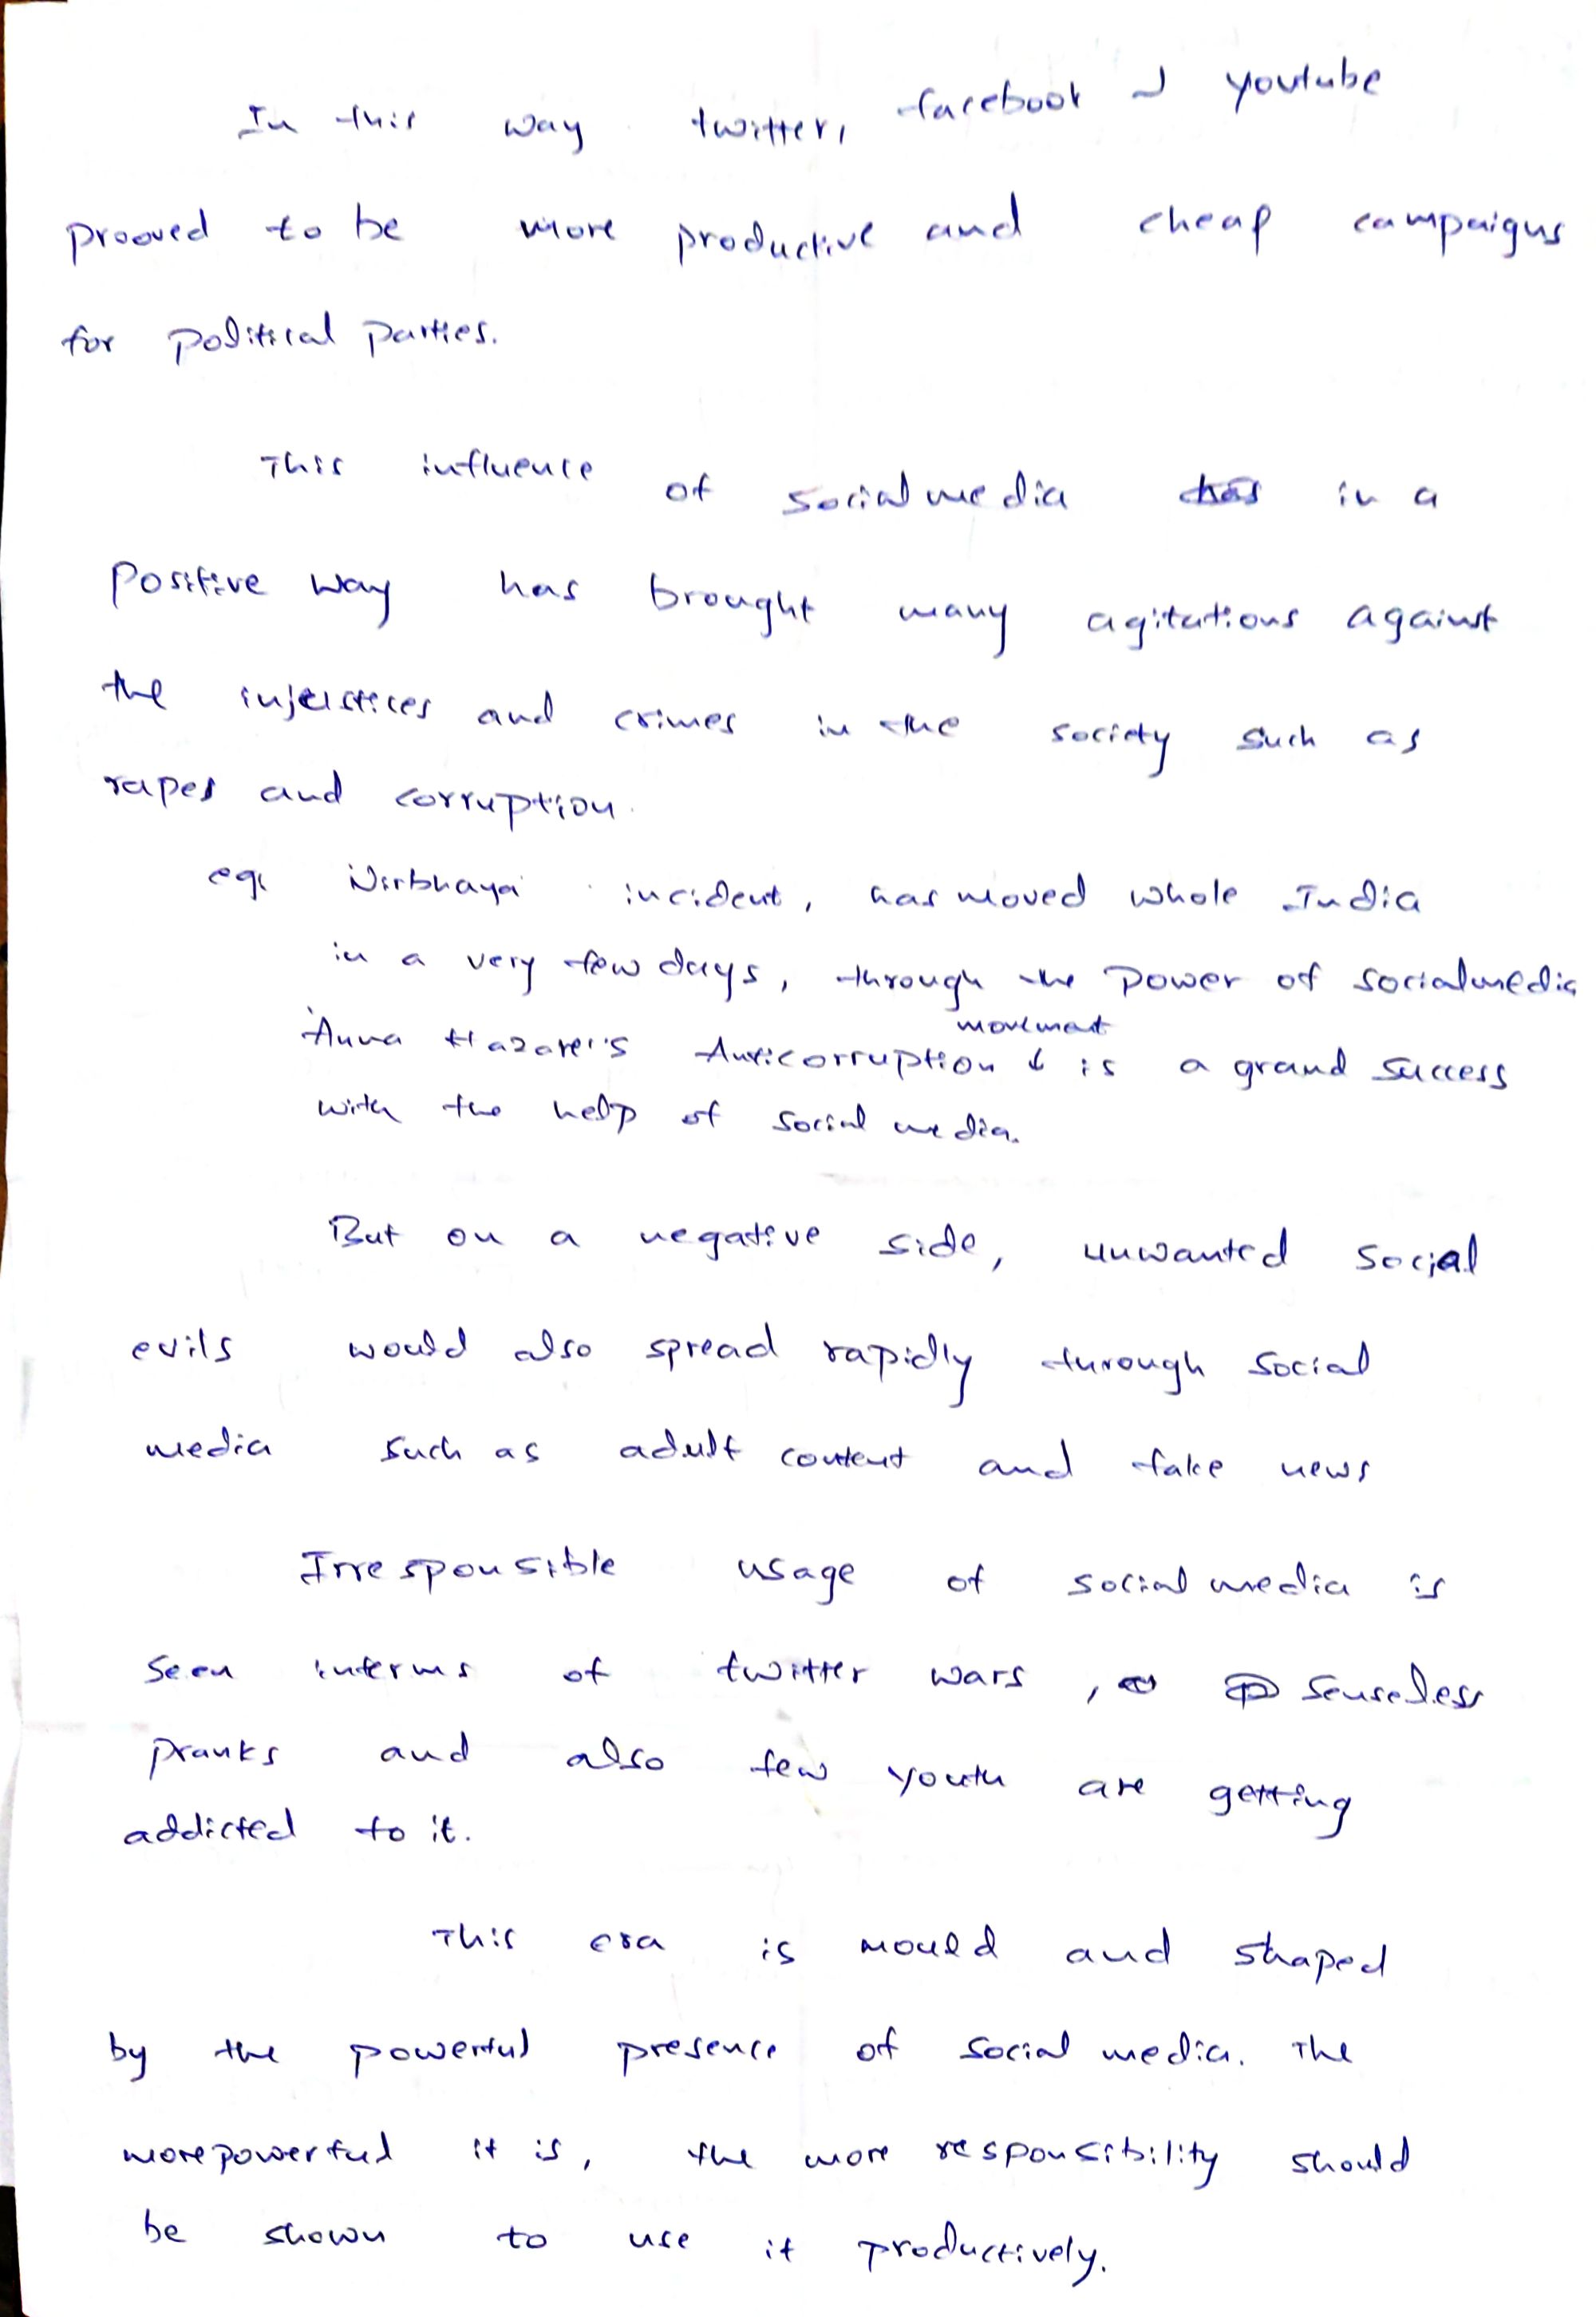 In this way twitter, facebook & youtube
prooved to be more productive and cheap campaigns
for political parties.
This influence of social media has in a
positive way has brought many agitations against
the injustices and crimes in the society such as
rapes and corruption.
eg: Nirbhaya incident, has moved whole India
in a very few days, through the power of socialmedia
Anna Hazare's Anticorruption movement is a grand success
with the help of social media.
But on a negative side, unwanted social
evils would also spread rapidly through social
media such as adult content and fake news
Irresponsible usage of social media is
seen interms of twitter wars, senseless
pranks and also few youth are getting
addicted to it.
This era is mould and shaped
by the powerful presence of social media. The
more powerful it is, the more responsibility should
be shown to use it productively.